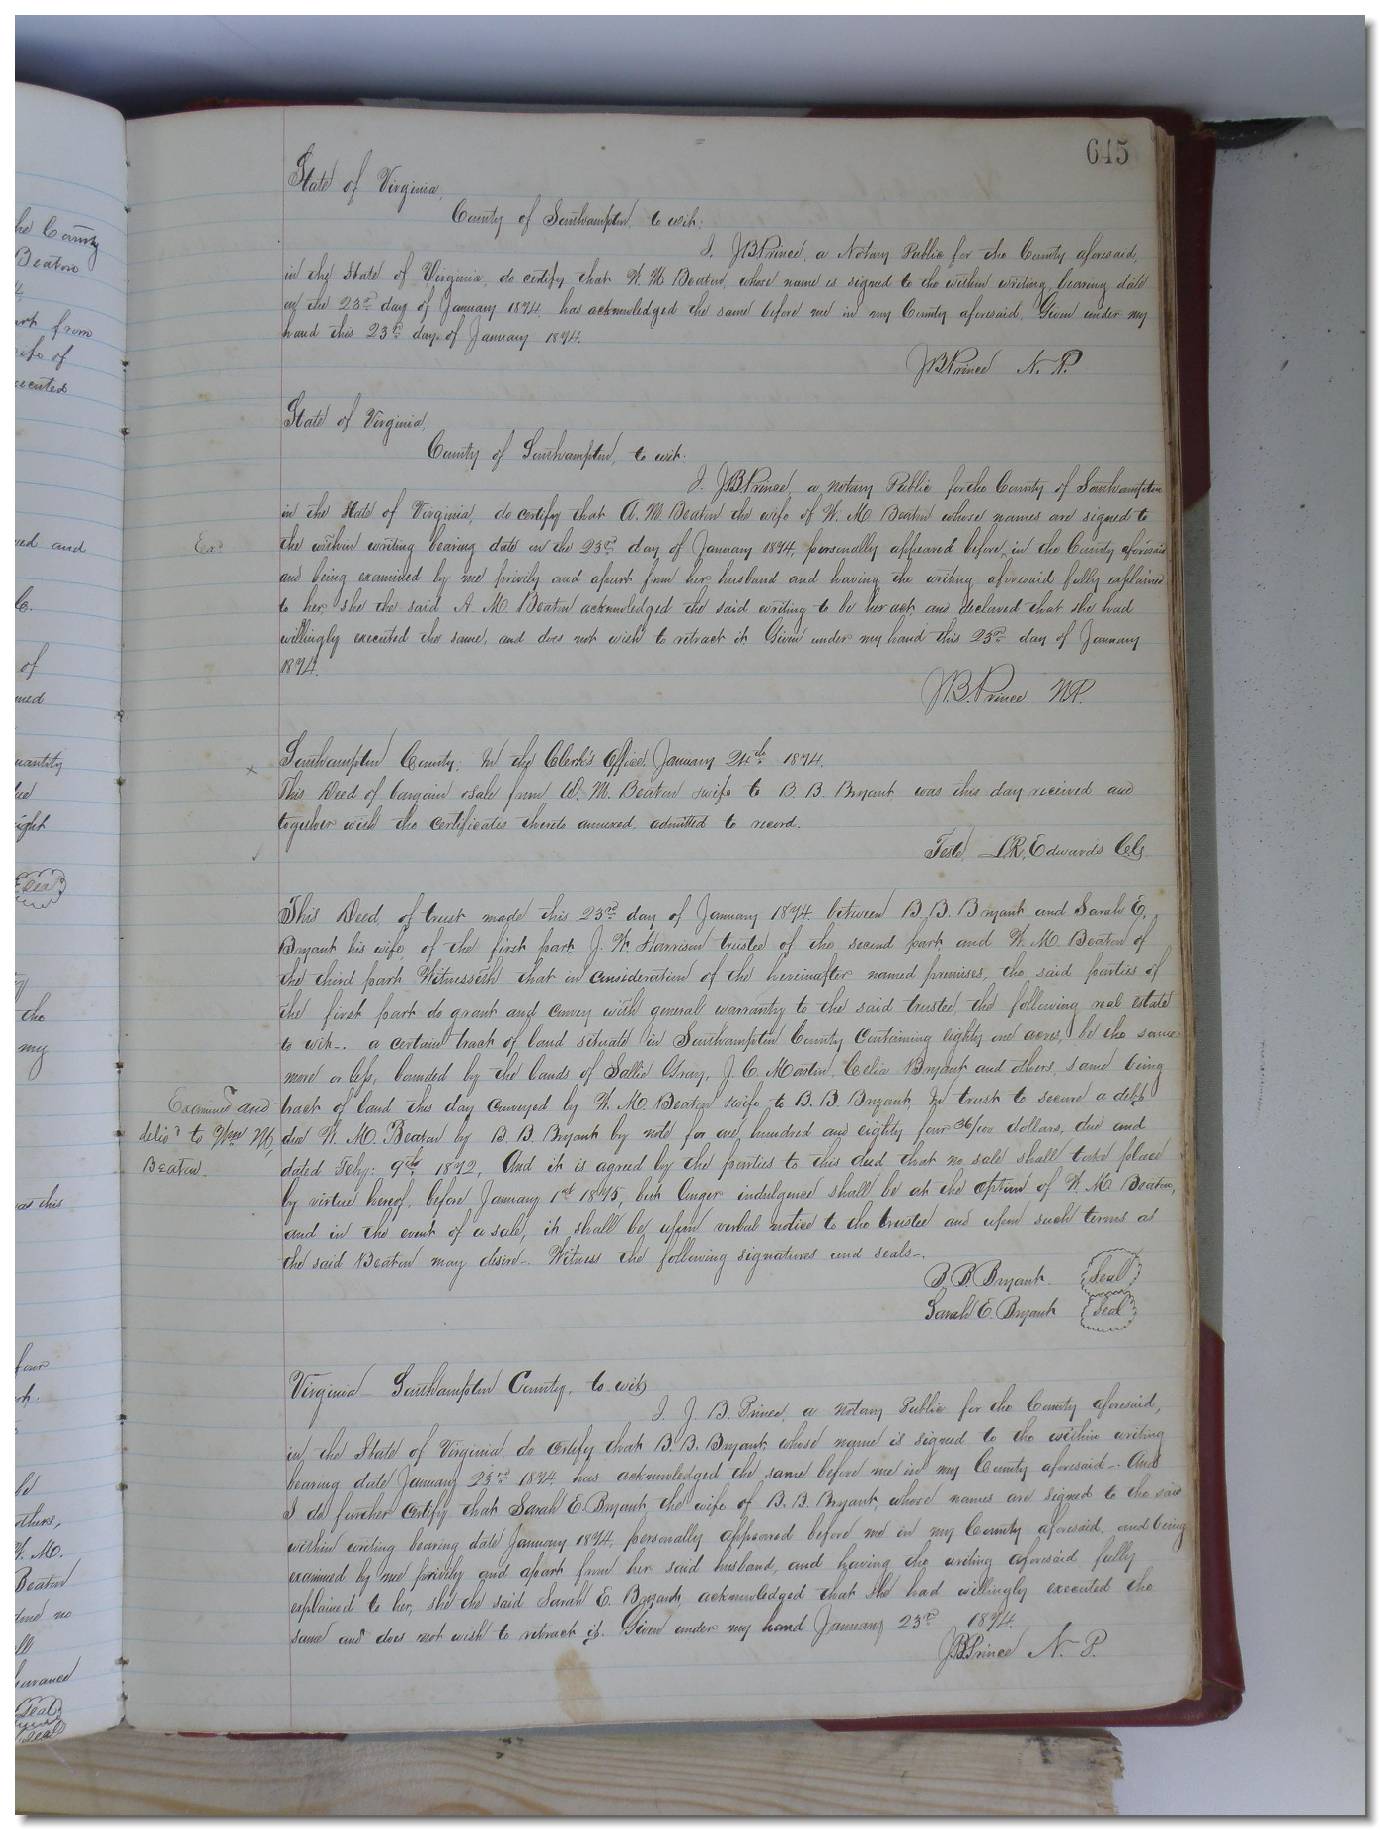 he County
Beaton
art from
wife of
executed
ved and
of
med
quantity
right
Seal
the
my
as this
four
others,
W. M.
Beaton
no
Seal
Seal
645
State of Virginia,
County of Southampton, to wit:
I, J B Prince, a Notary Public for the County aforesaid,
in the State of Virginia, do certify that W. M Beaton, whose name is signed to the within writing, bearing date
on the 23rd day of January 1894, has acknowledged the same before me in my County aforesaid. Given under my
hand this 23rd day of January 1894.
J B Prince N. P.
State of Virginia,
County of Southampton, to wit:
I, J B Prince, a notary Public for the County of Southampton
in the State of Virginia, do certify that A. M Beaton the wife of W. M Beaton whose names are signed to
Ex?
the within writing bearing date on the 23rd day of January 1894, personally appeared before, in the County aforesaid
and being examined by me privily and apart from her husband and having the writing aforesaid fully explained
to her, she the said A. M Beaton acknowledged the said writing to be her act, and declared that she had
willingly executed the same, and does not wish to retract it. Given under my hand this 23rd day of January
1894.
J. B. Prince N.P.
x
Southampton County. In the Clerk's Office, January 24th 1894.
This Deed of bargain & sale from W. M. Beaton & wife to B. B. Bryant was this day received and
together with the certificates thereto annexed, admitted to record.
Teste, L. R. Edwards Clk
This Deed of trust made this 23rd day of January 1894 between B. B. Bryant and Sarah E.
Bryant his wife, of the first part, J. W. Harrison trustee of the second part, and W. M Beaton of
the third part Witnesseth that in consideration of the hereinafter named premises, the said parties of
the first part do grant and convey with general warranty to the said trustee, the following real estate
to wit-. a certain tract of land situate in Southampton County Containing eighty one acres, be the same
more or less, bounded by the lands of Sallie Gray, J. C. Martin, Celia Bryant and others, same being
Examined and
tract of land this day conveyed by W. M Beaton & wife to B. B. Bryant, In trust to secure a debt
deliv'd to Wm M,
due W. M. Beaton by B. B. Bryant by note for one hundred and eighty four 36/100 dollars, due and
Beaton.
dated Feby: 9th 1892. And it is agreed by the parties to this deed, that no sale shall take place
by virtue hereof, before January 1st 1895, but longer indulgence shall be at the option of W. M Beaton,
and in the event of a sale, it shall be upon verbal notice to the trustee and upon such terms as
the said Beaton may desire-. Witness the following signatures and seals-.
B. B. Bryant Seal
Sarah E. Bryant Seal
Virginia - Southampton County, to wit,
I, J. B. Prince, a Notary Public for the County aforesaid,
in the State of Virginia do certify that B. B. Bryant, whose name is signed to the within writing
bearing date January 23rd 1894, has acknowledged the same before me in my County aforesaid-. And
I do further certify that Sarah E. Bryant the wife of B. B. Bryant, whose names are signed to the said
within writing bearing date January 1894, personally appeared before me in my County aforesaid, and being
examined by me privily and apart from her said husband, and having the writing aforesaid fully
explained to her, she the said Sarah E. Bryant, acknowledged that she had willingly executed the
same and does not wish to retract it. Given under my hand January 23rd 1894.
J B Prince N. P.